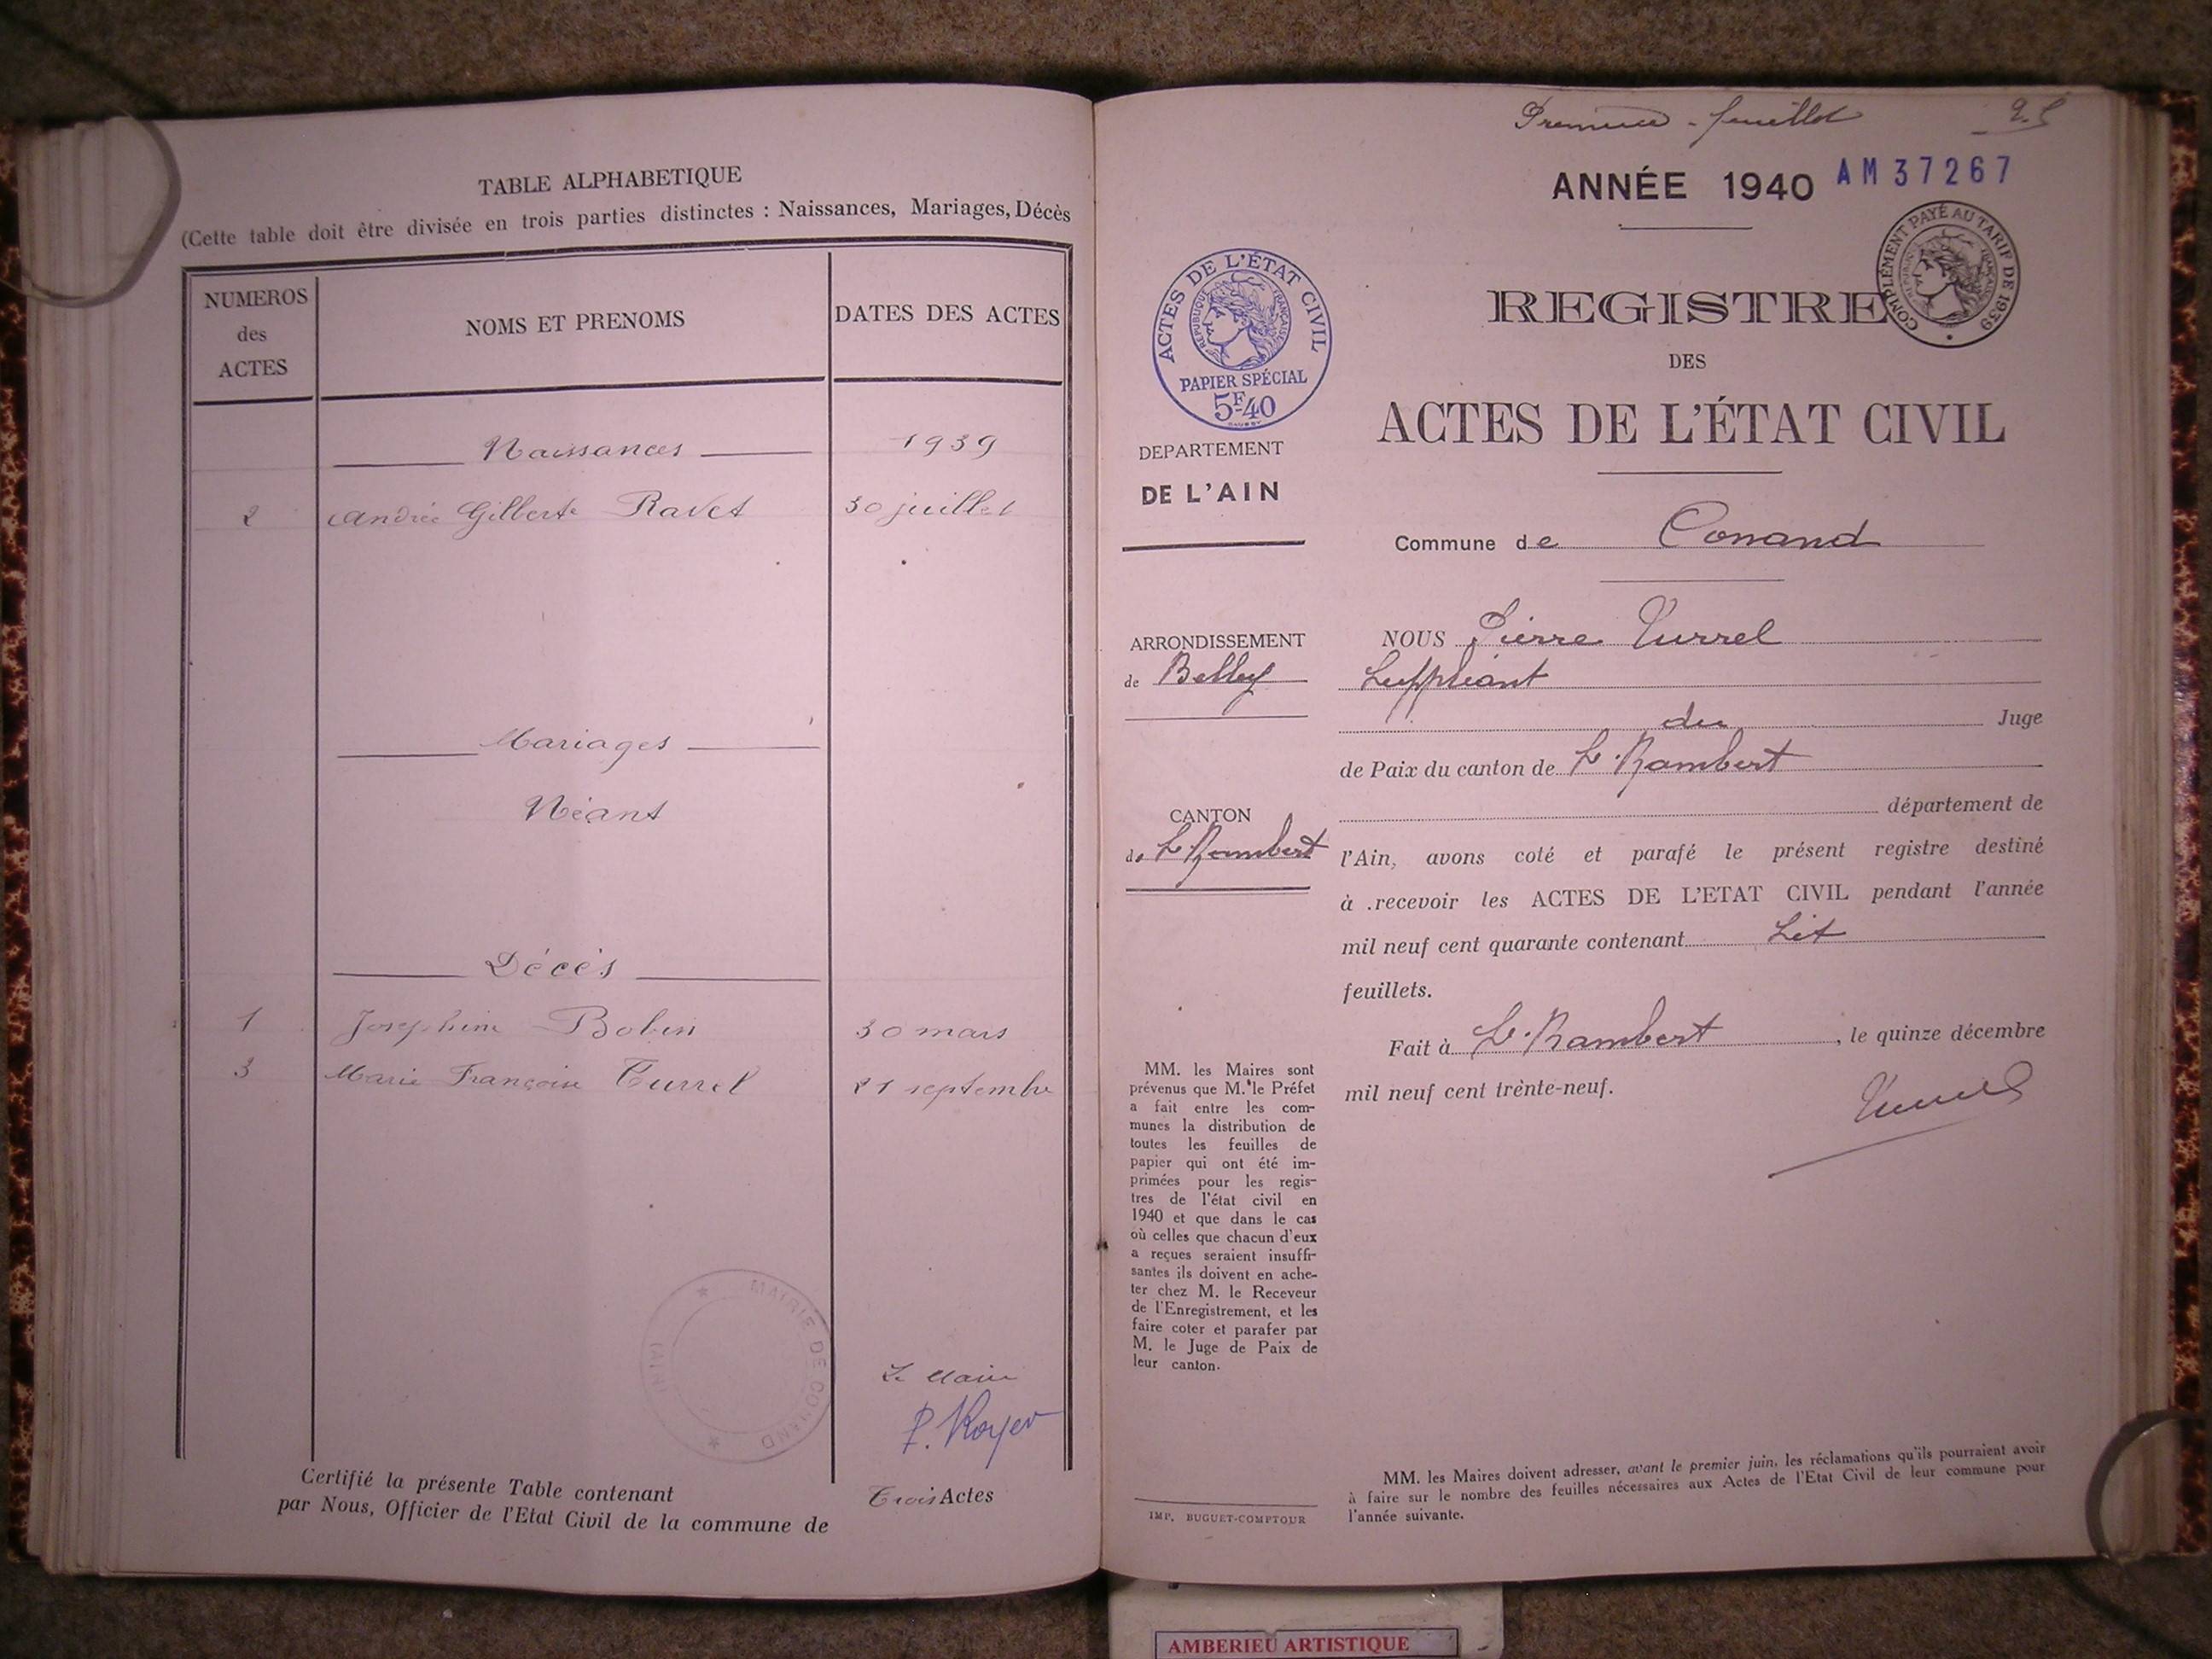 TABLE ALPHABETIQUE
(Cette table doit être divisée en trois parties distinctes : Naissances, Mariages, Décès
NUMEROS des ACTES
NOMS ET PRENOMS
DATES DES ACTES
Naissances 1939
2 Andrée Gilberte Ravet 30 juillet
Mariages
Néant
Décès
1 Josephine Bobin 30 mars
3 Marie Françoise Turrel 21 septembre
MAIRIE DE CONAND
(AIN)
Le Maire
P. Royer
Certifié la présente Table contenant Trois Actes
par Nous, Officier de l'Etat Civil de la commune de
Premier feuillet
ANNÉE 1940 AM37267
COMPLÉMENT PAYÉ AU TARIF DE 1939
ACTES DE L'ÉTAT CIVIL
REPUBLIQUE FRANÇAISE
PAPIER SPÉCIAL
5F40
REGISTRE
DES
ACTES DE L'ÉTAT CIVIL
DEPARTEMENT
DE L'AIN
Commune de Conand
ARRONDISSEMENT
de Belley
CANTON
de St Rambert
NOUS Pierre Turrel
Suppléant
du Juge
de Paix du canton de St Rambert
département de
l'Ain, avons coté et parafé le présent registre destiné
à recevoir les ACTES DE L'ETAT CIVIL pendant l'année
mil neuf cent quarante contenant Sit
feuillets.
Fait à St Rambert, le quinze décembre
mil neuf cent trente-neuf.
Turrel
MM. les Maires sont
prévenus que M. le Préfet
a fait entre les com-
munes la distribution de
toutes les feuilles de
papier qui ont été im-
primées pour les regis-
tres de l'état civil en
1940 et que dans le cas
où celles que chacun d'eux
a reçues seraient insuffi-
santes ils doivent en ache-
ter chez M. le Receveur
de l'Enregistrement, et les
faire coter et parafer par
M. le Juge de Paix de
leur canton.
IMP. BUGUET-COMPTOUR
MM. les Maires doivent adresser, avant le premier juin, les réclamations qu'ils pourraient avoir
à faire sur le nombre des feuilles nécessaires aux Actes de l'Etat Civil de leur commune pour
l'année suivante.
AMBERIEU ARTISTIQUE